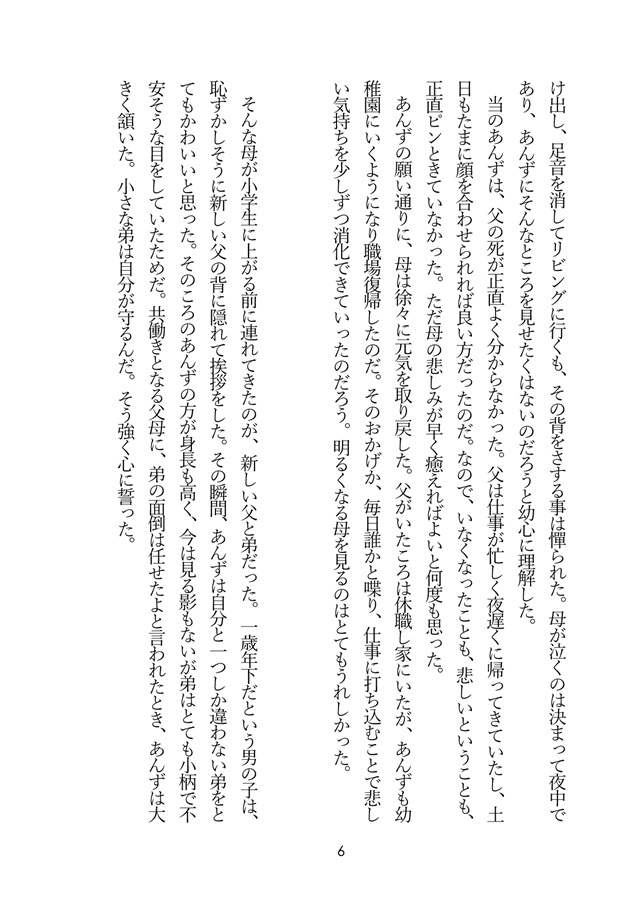 け出し、足音を消してリビングに行くも、その背をさする事は憚られた。母が泣くのは決まって夜中で
あり、あんずにそんなところを見せたくはないのだろうと幼心に理解した。
当のあんずは、父の死が正直よく分からなかった。父は仕事が忙しく夜遅くに帰ってきていたし、土
日もたまに顔を合わせられれば良い方だったのだ。なので、いなくなったことも、悲しいということも、
正直ピンときていなかった。ただ母の悲しみが早く癒えればよいと何度も思った。
あんずの願い通りに、母は徐々に元気を取り戻した。父がいたころは休職し家にいたが、あんずも幼
稚園にいくようになり職場復帰したのだ。そのおかげか、毎日誰かと喋り、仕事に打ち込むことで悲し
い気持ちを少しずつ消化できていったのだろう。明るくなる母を見るのはとてもうれしかった。
そんな母が小学生に上がる前に連れてきたのが、新しい父と弟だった。一歳年下だという男の子は、
恥ずかしそうに新しい父の背に隠れて挨拶をした。その瞬間、あんずは自分と一つしか違わない弟をと
てもかわいいと思った。そのころのあんずの方が身長も高く、今は見る影もないが弟はとても小柄で不
安そうな目をしていたためだ。共働きとなる父母に、弟の面倒は任せたよと言われたとき、あんずは大
きく頷いた。小さな弟は自分が守るんだ。そう強く心に誓った。
6